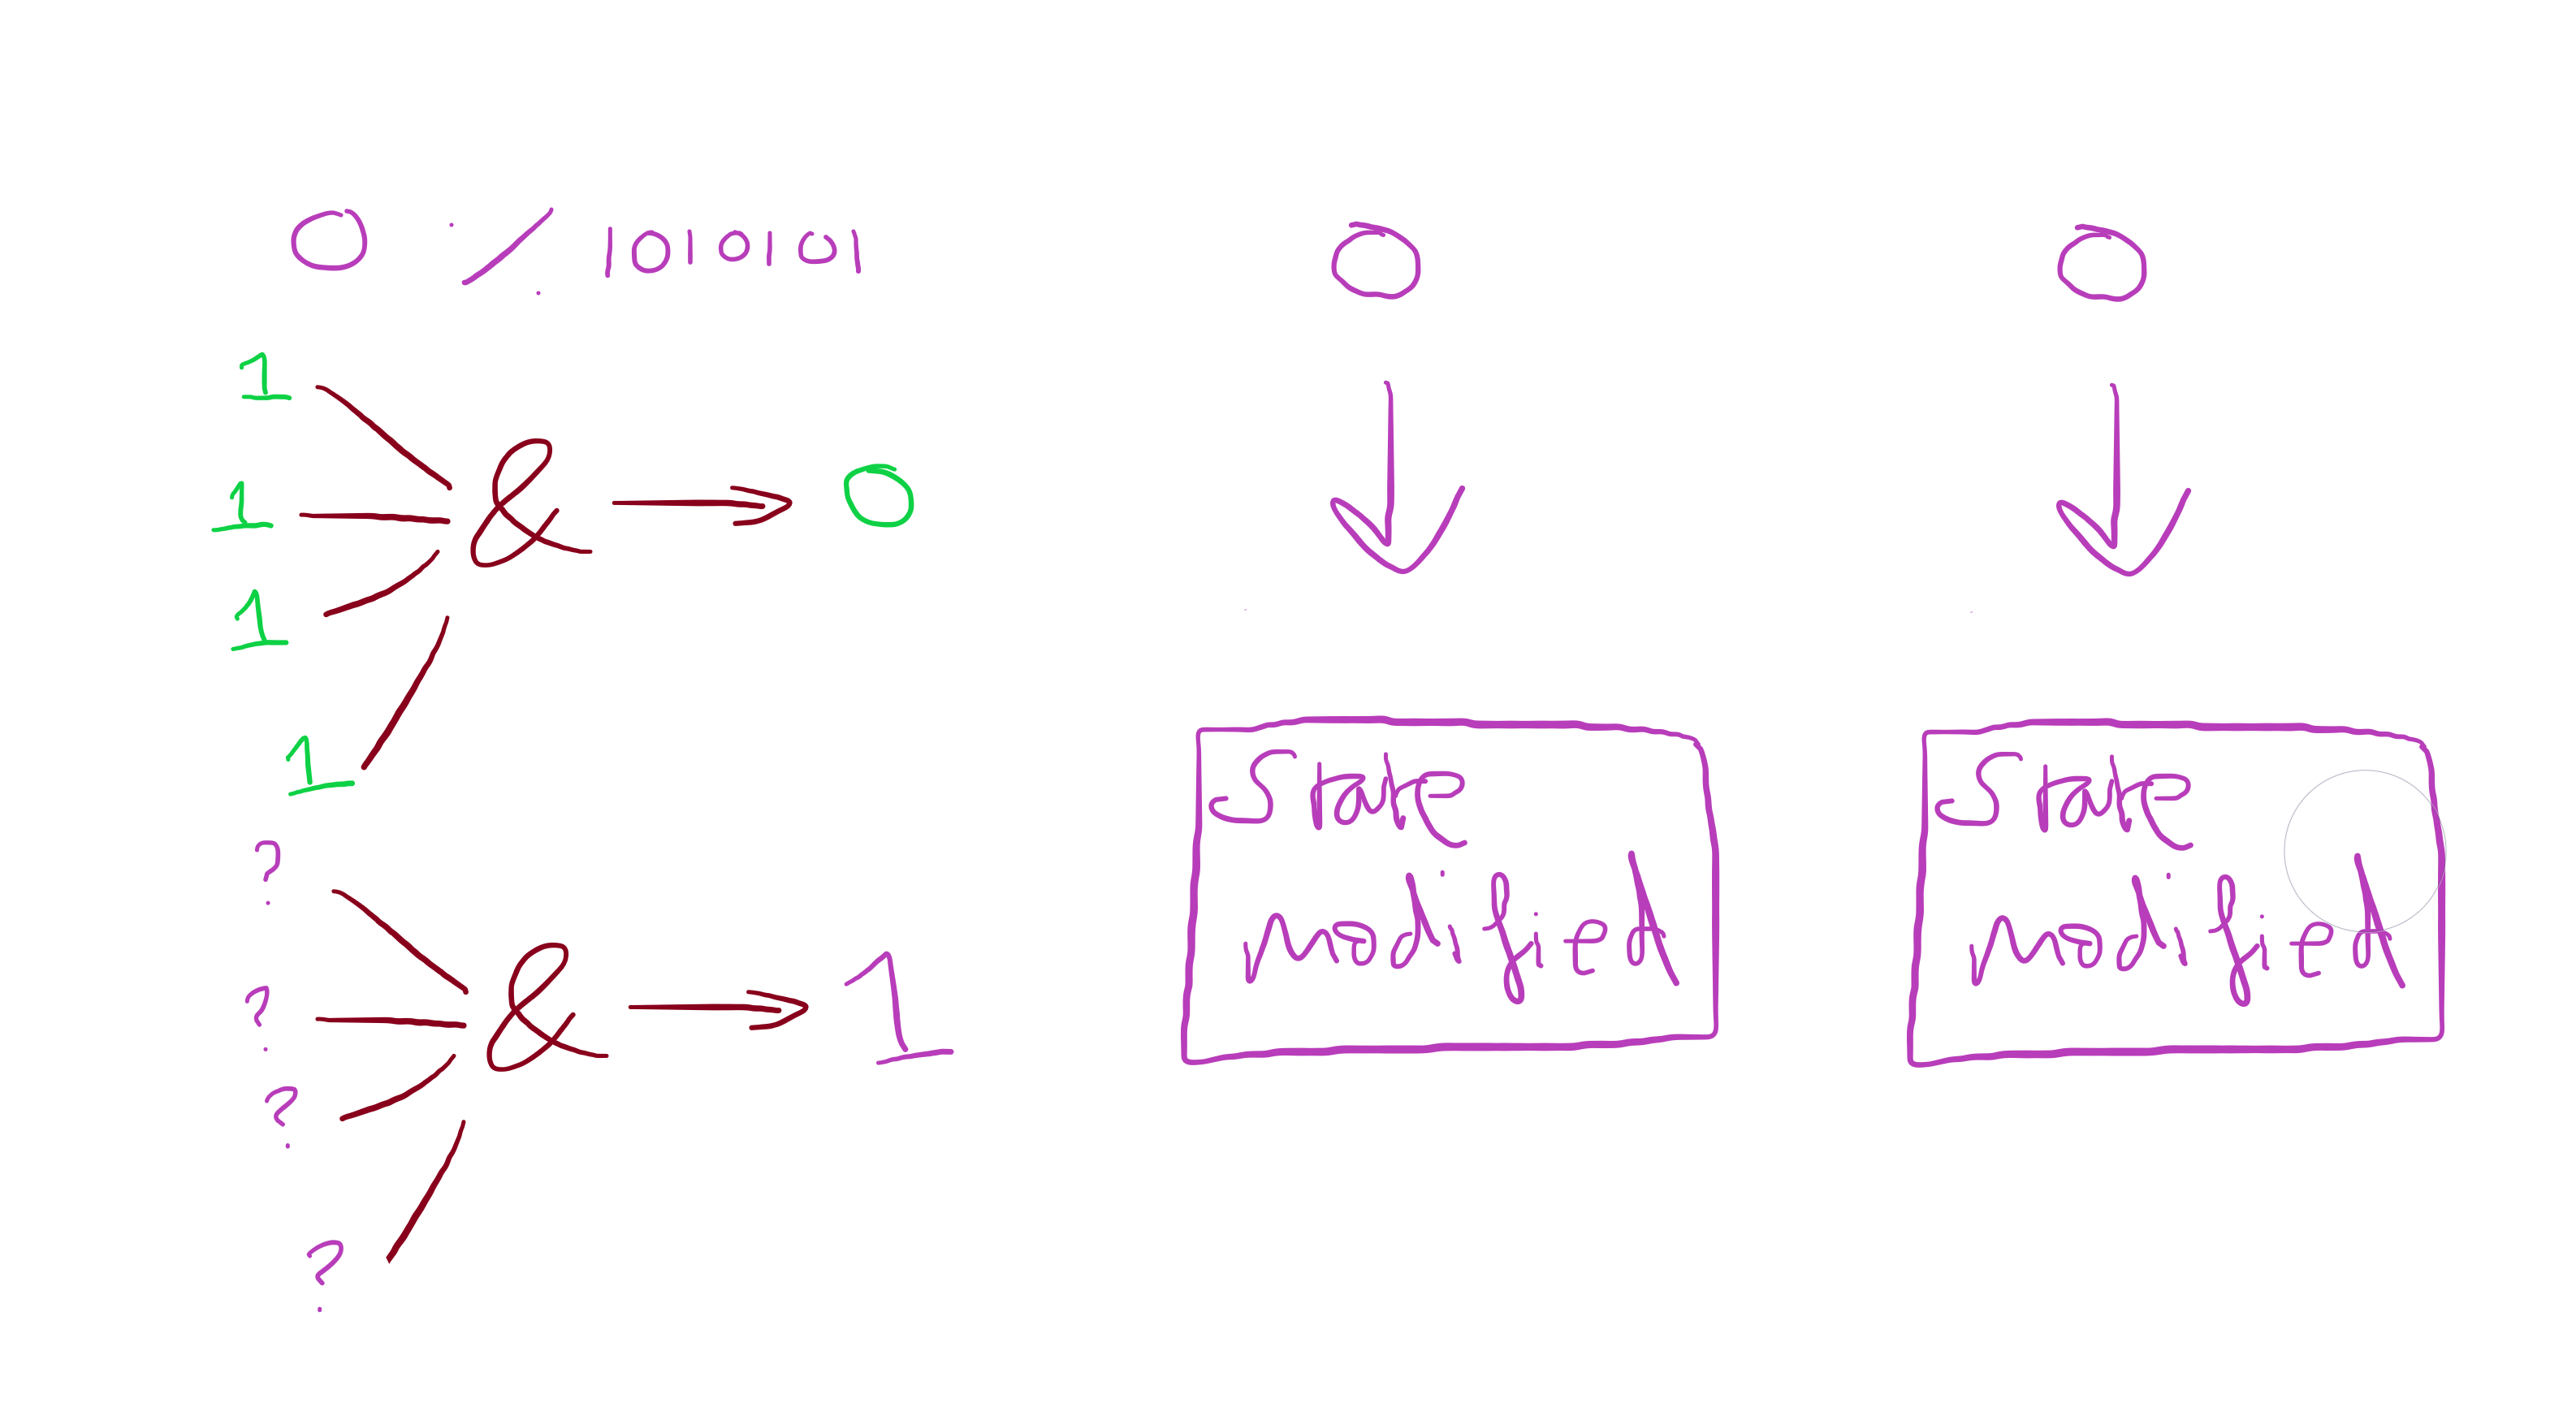 0 ⁒ 1010101
1
1
& → 0
1
1
?
?
& → 1
?
?
0
State
modified
0
State
modified